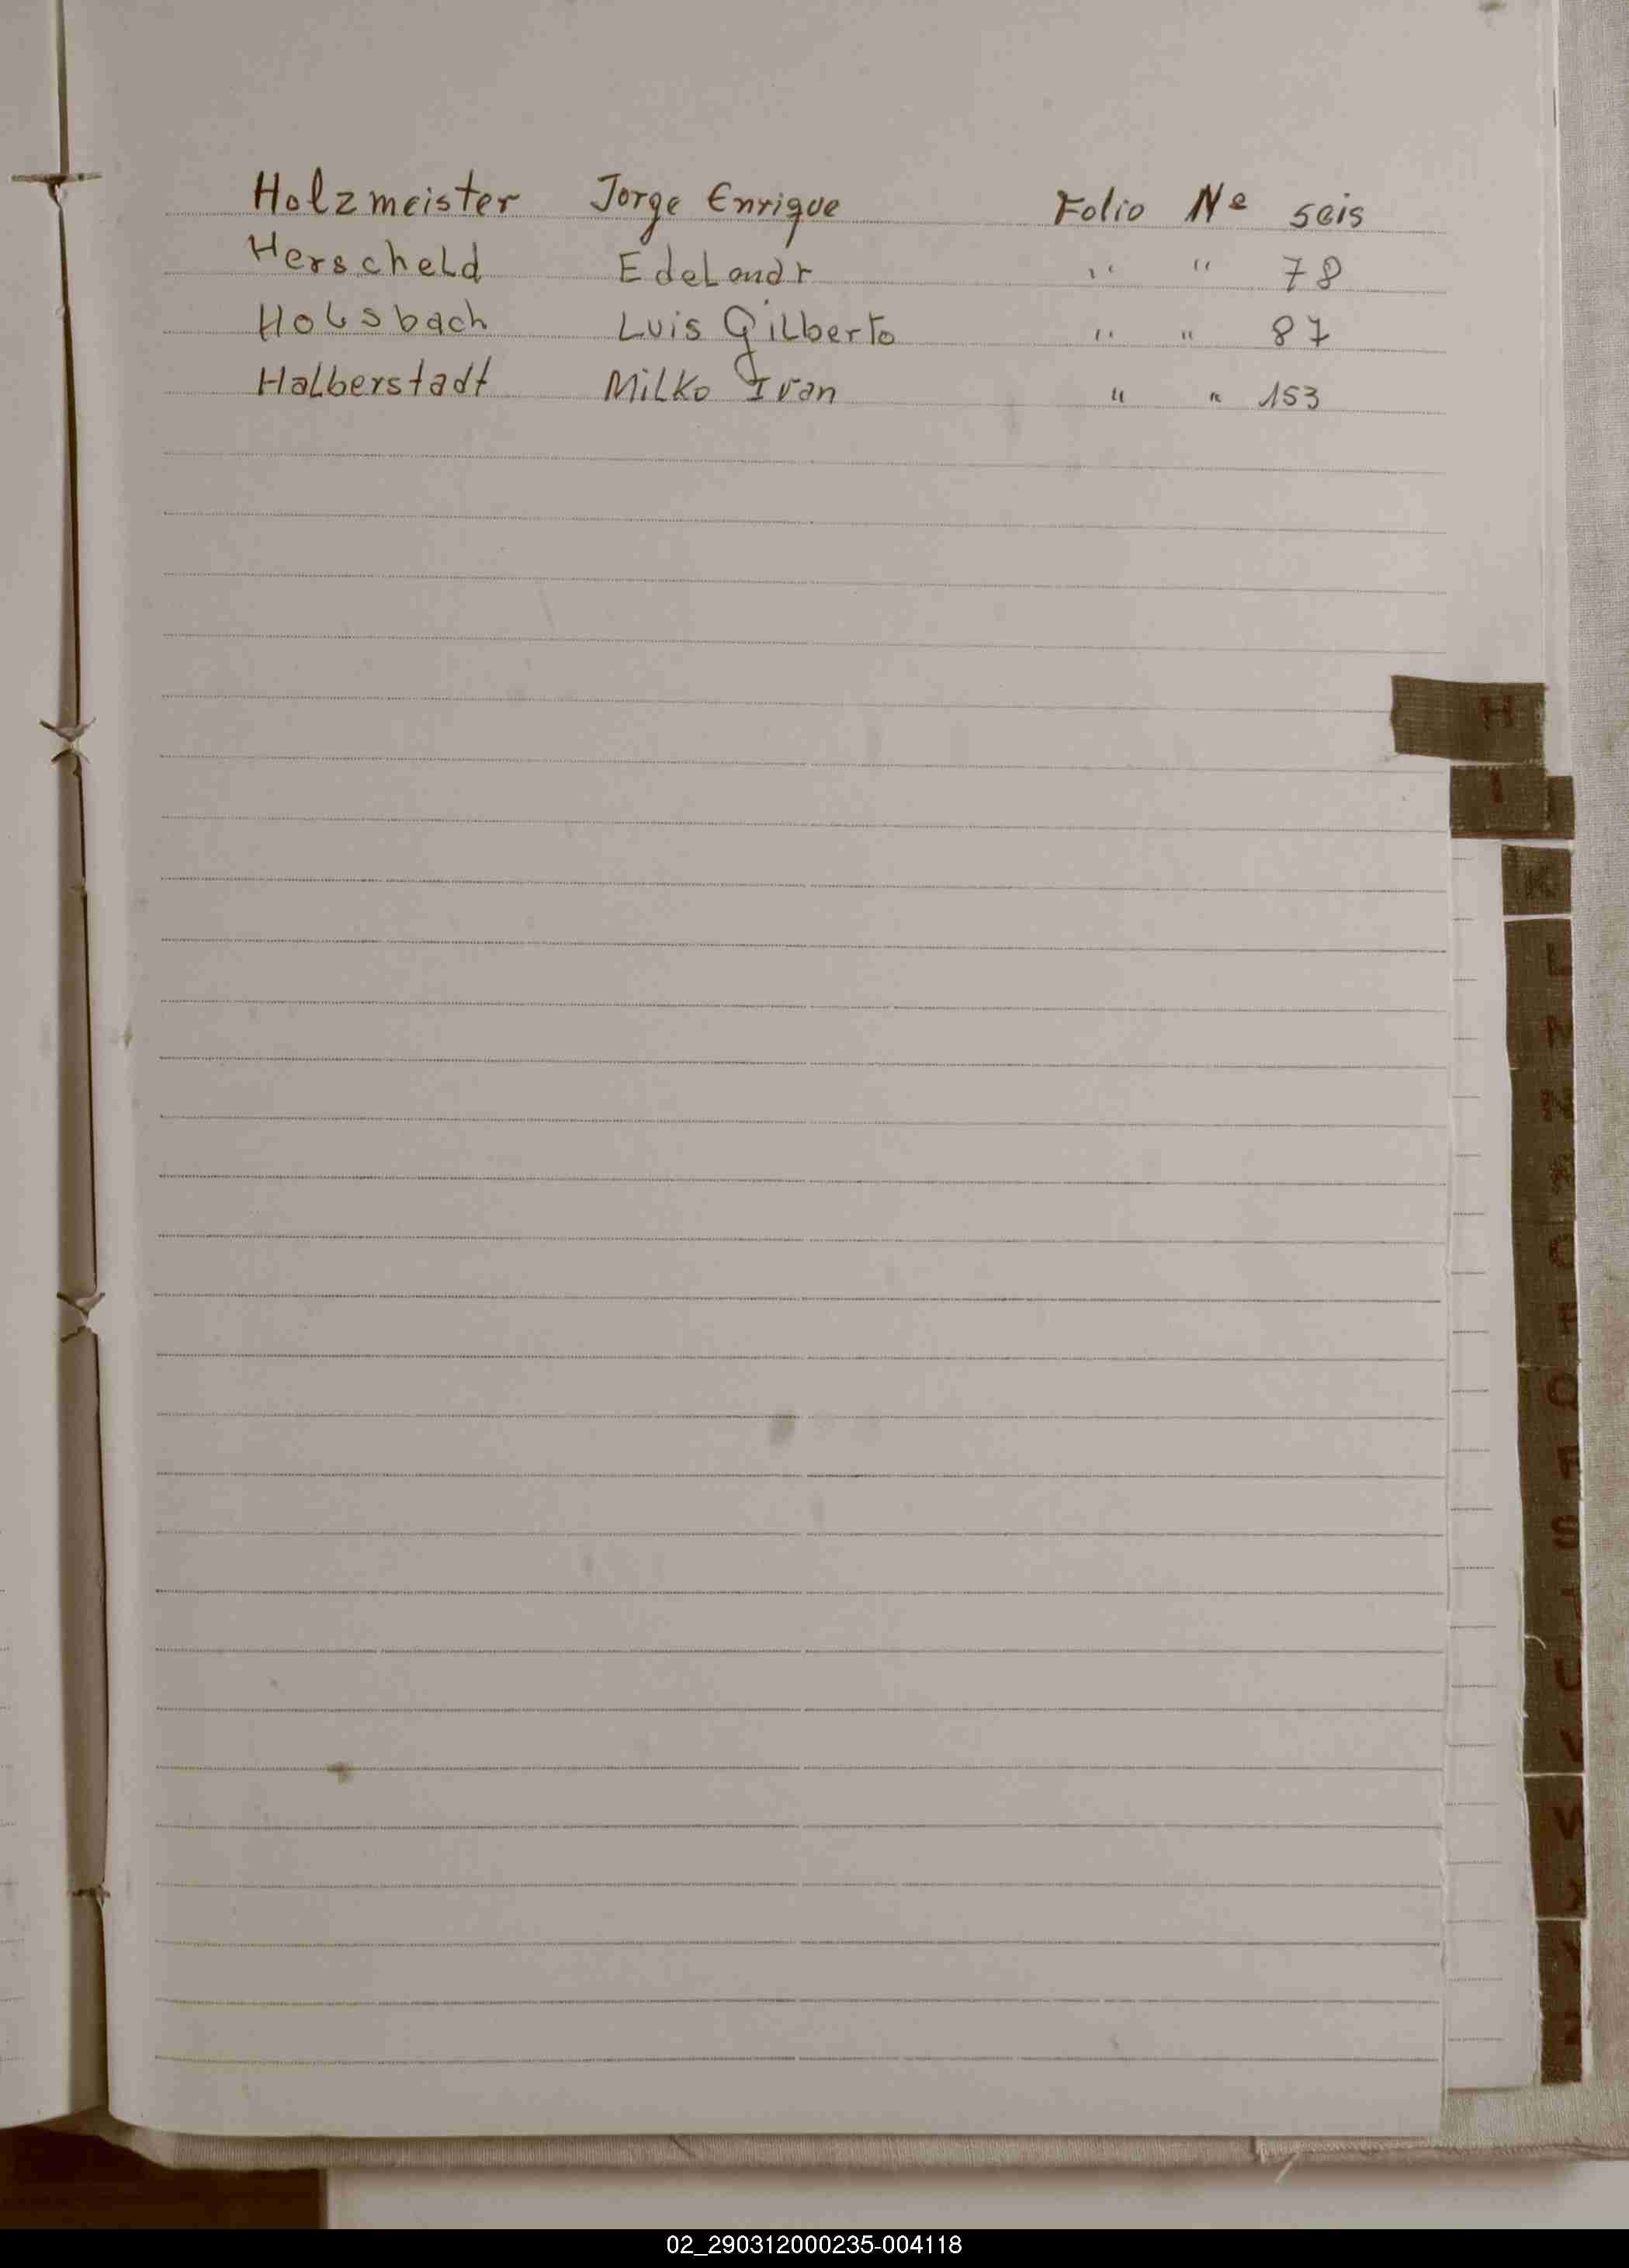 Holzmeister Jorge Enrique Folio Nº seis
Herscheld Edelandr " " 78
Holsbach Luis Gilberto " " 87
Halberstadt Milko Ivan " " 153
H
I J
K
L
M
N
Ñ
O
P
Q
R
S
T
U
V
W
X
Y
02_290312000235-004118